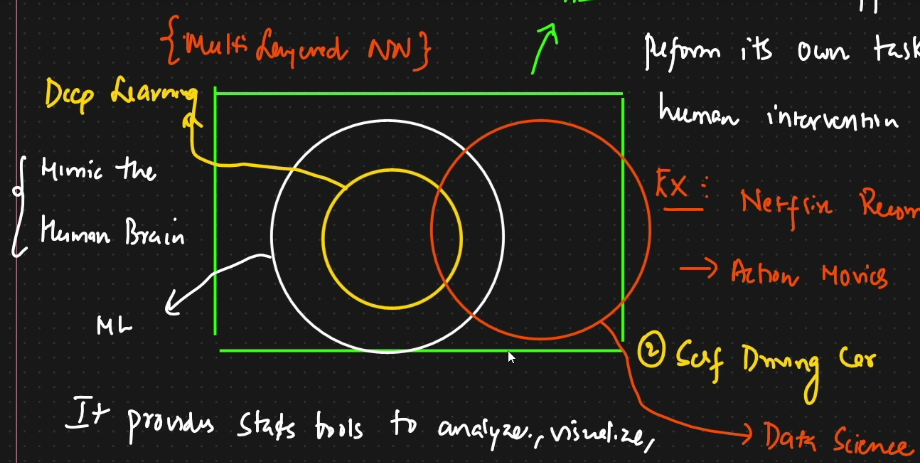 {Multi Layered NN}
Deep Learning
Mimic the
Human Brain
ML
perform its own task
human intervention
Ex:
Netflix Recom
→ Action Movies
② Self Driving Car
→ Data Science
It provides stats tools to analyze, visualize,